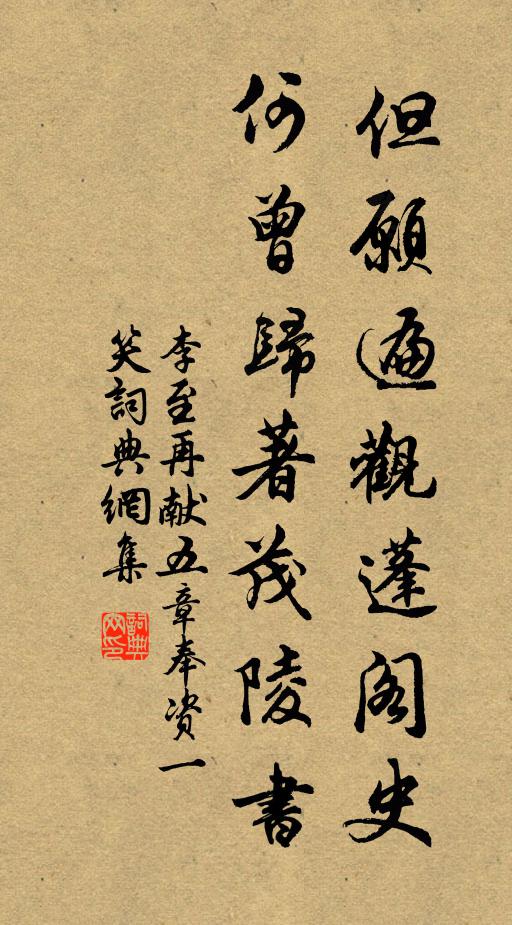 但願遍觀蓬閣史
何曾歸著茂陵書
李至再献五章奉资一
笑詞典網集
詞典網印